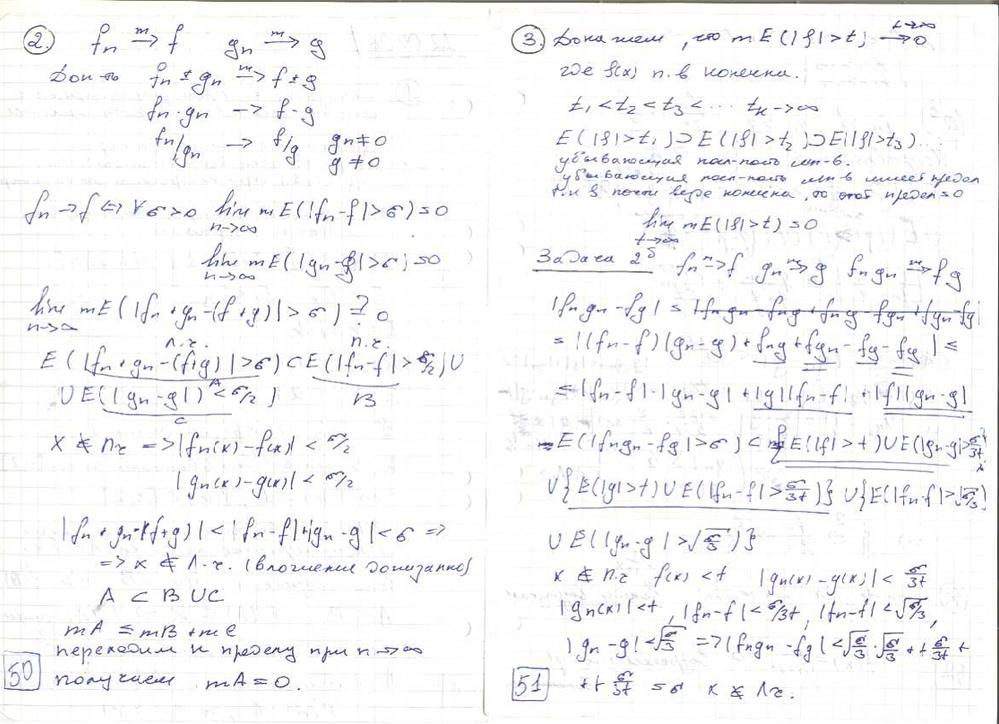 2. fn m→ f gn m→ g
Док-ть fn ± gn m→ f ± g
fn·gn → f·g
fn/gn → f/g gn ≠ 0
g ≠ 0
fn → f ⇔ ∀σ>0 lim n→∞ mE(|fn-f|>σ)=0
lim n→∞ mE(|gn-g|>σ)=0
lim n→∞ mE(|fn+gn-(f+g)|>σ) ?= 0
л.ч. п.ч.
E(|fn+gn-(f+g)|>σ) ⊂ E(|fn-f|>σ/2) ∪
A B
∪ E(|gn-g|<σ/2)
C
x ∉ п.ч => |fn(x)-f(x)| < σ/2
|gn(x)-g(x)| < σ/2
|fn+gn-(f+g)| < |fn-f|+|gn-g| < σ =>
=> x ∉ л.ч. (вложение доказано)
A ⊂ B ∪ C
mA ≤ mB + mC
переходим к пределу при n→∞
50 получаем mA=0.
3. Докажем, что mE(|f|>t) t→∞ →0
где f(x) п.в конечна.
t1<t2<t3<... tк→∞
E(|f|>t1)⊃E(|f|>t2)⊃E(|f|>t3)...
убывающая посл-ность мн-в.
убывающая посл-ность мн-в имеет предел
т.к f почти везде конечна, то этот предел=0
lim t→∞ mE(|f|>t)=0
Задача 2б fn m→ f gn m→ g fngn m→ fg
|fngn-fg| = |fngn-fng+fng-fgn+fgn-fg|
= |(fn-f)(gn-g)+fng+fgn-fg-fg| ≤
≤ |fn-f|·|gn-g|+|g||fn-f|+|f||gn-g|
E(|fngn-fg|>σ) ⊂ {E(|f|>t)∪E(|gn-g|>σ/3t)}
∪{E(|g|>t)∪E(|fn-f|>σ/3t)} ∪{E(|fn-f|>√σ/3)
∪ E(|gn-g|>√σ/3)}
x ∉ п.ч f(x)<t |gn(x)-g(x)|<σ/3t
|gn(x)|<t, |fn-f|<σ/3t, |fn-f|<√σ/3,
|gn-g|<√σ/3 => |fngn-fg|<√σ/3·√σ/3+t σ/3t+
51 +t σ/3t = σ x ∉ л.ч.